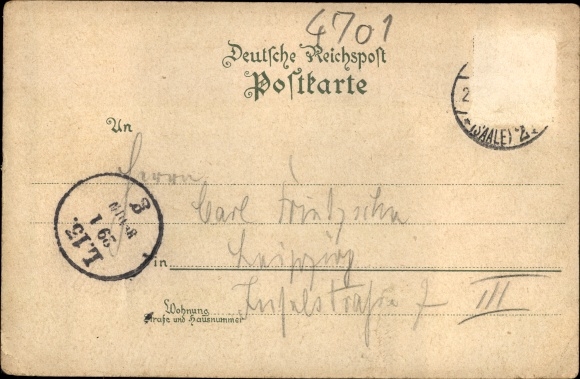 4701
Deutsche Reichspost
Postkarte
An
Herrn
Carl Fritzsche
in Leipzig
Wohnung
Straße und Hausnummer
Inselstraße 7 III
L. 13.
29 1
8
2
(SAALE) *2